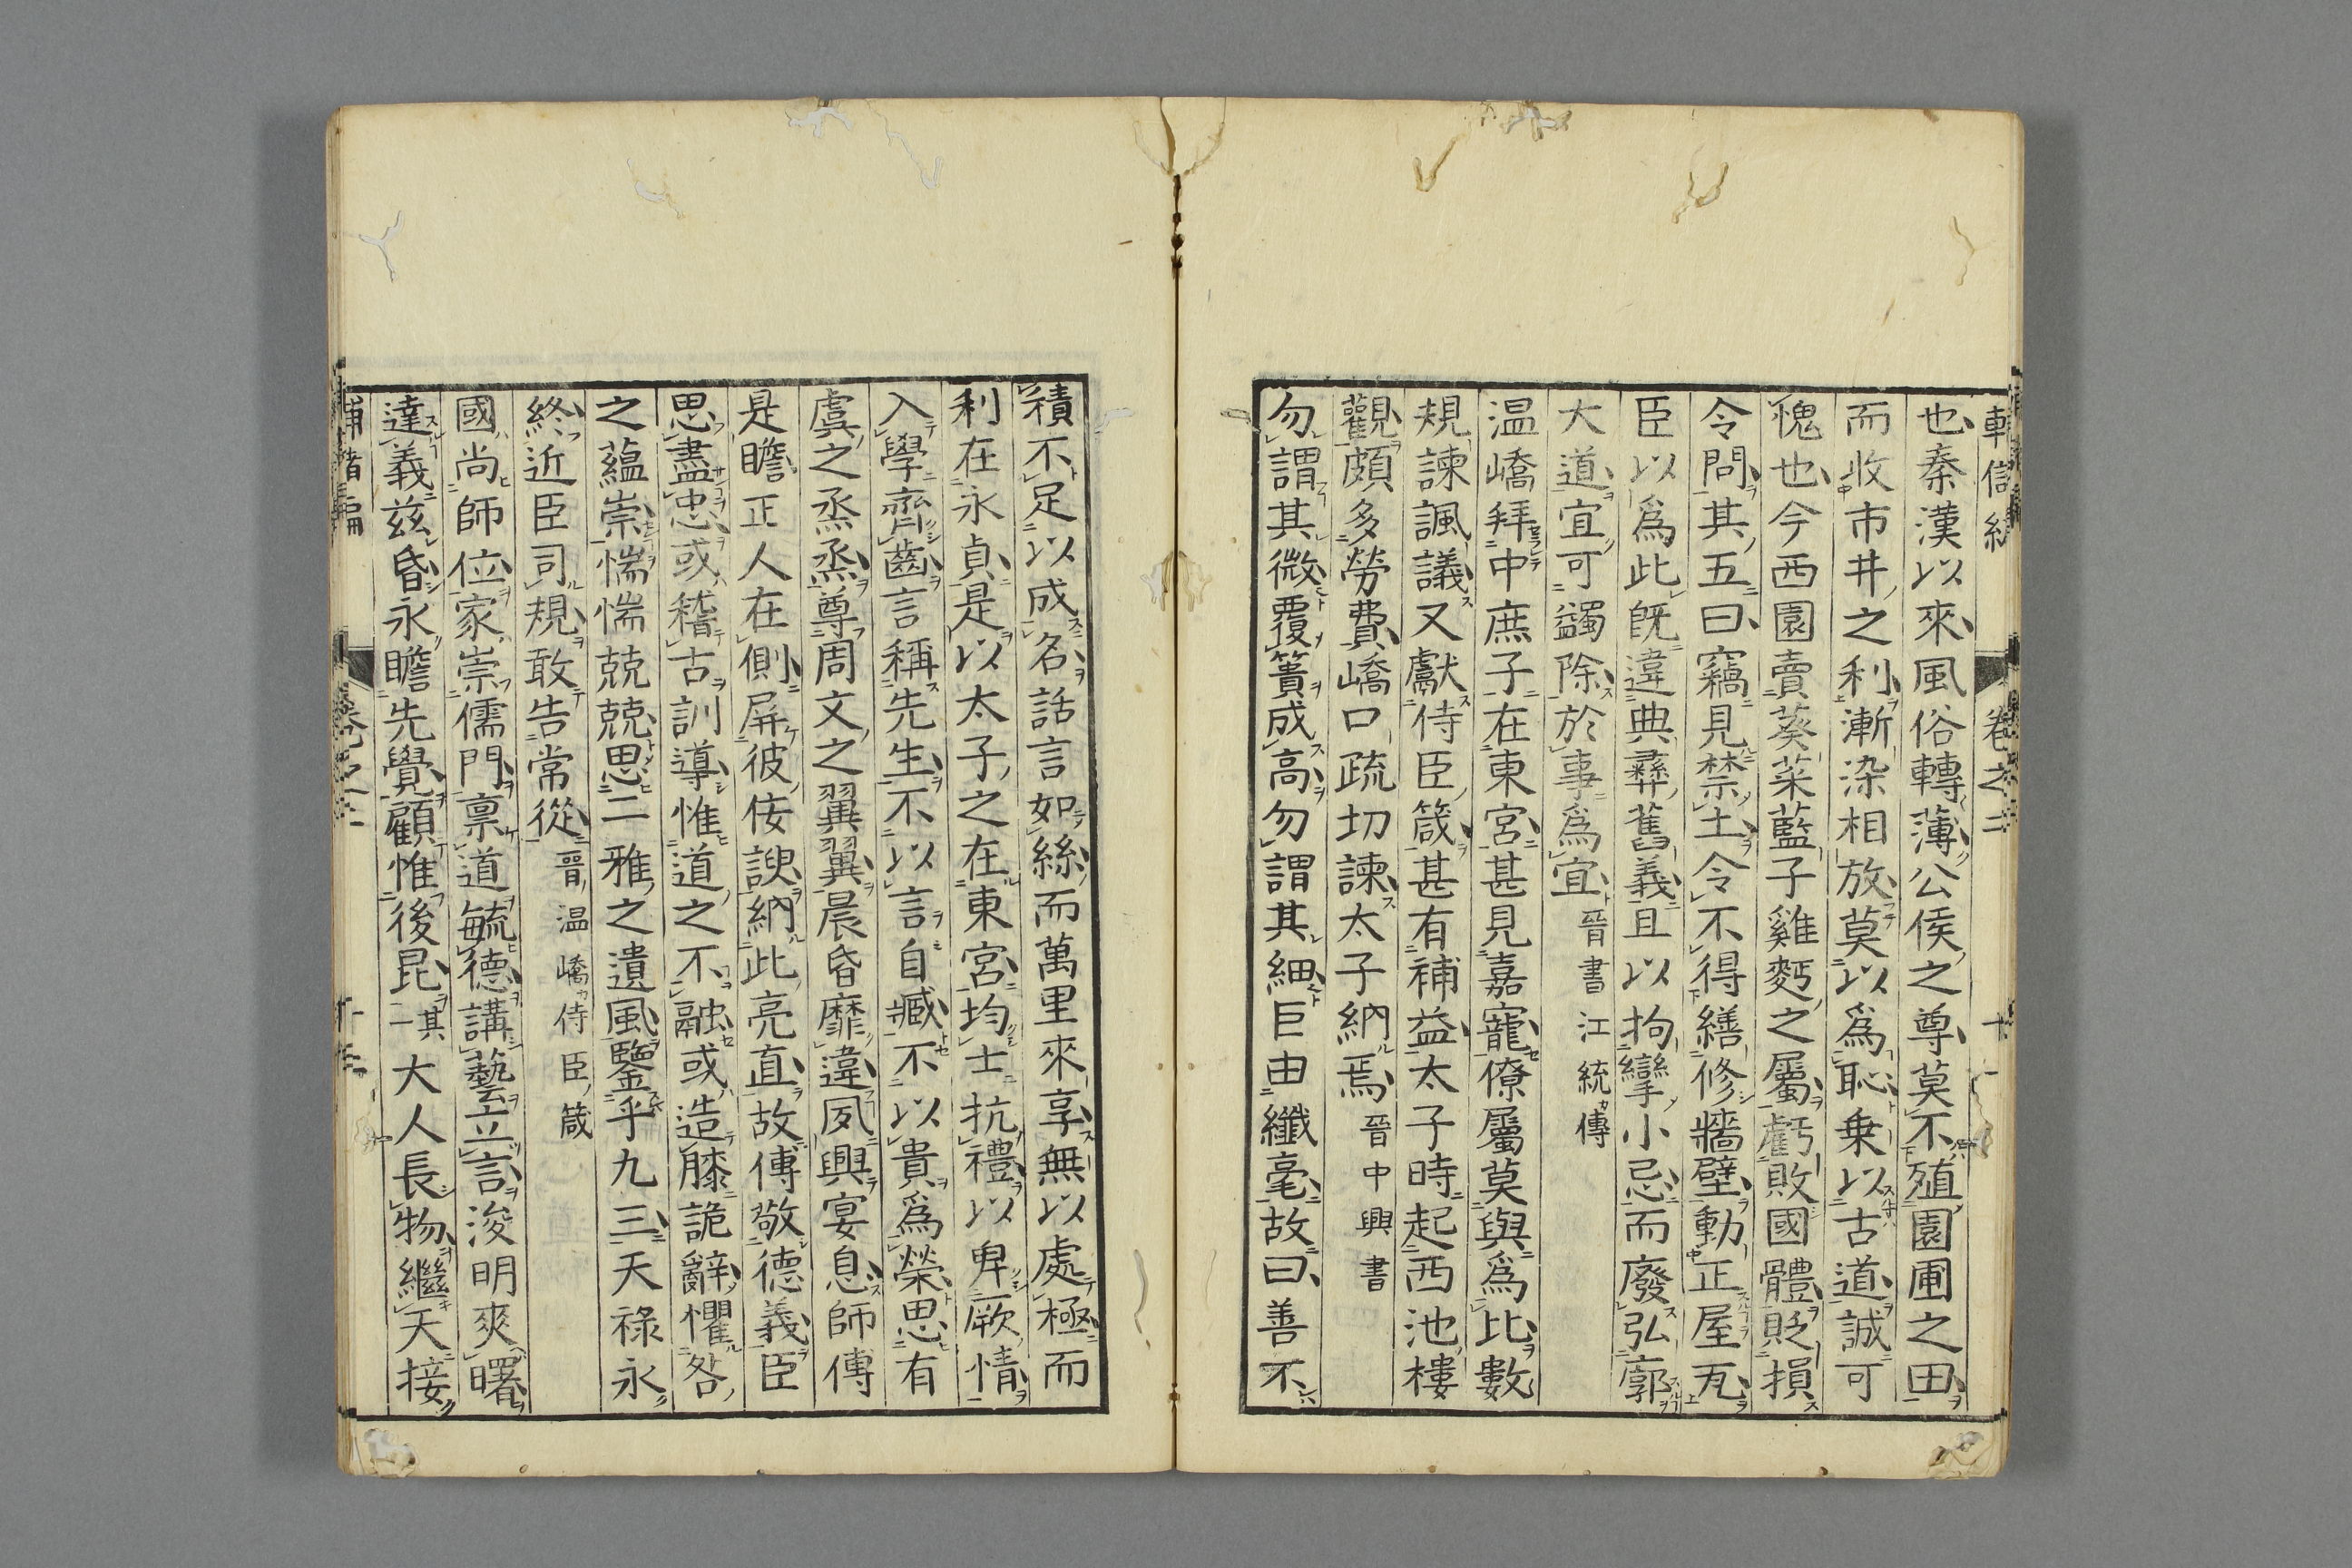 卷之二
也秦漢以來風俗轉薄公侯之尊莫不殖園圃之田
而收市井之利漸染相放莫以爲恥乗以古道誠可
愧也今西園賣葵菜藍子雞麪之屬虧敗國體貶損
令問其五曰竊見禁土令不得繕修牆壁動正屋瓦
臣以爲此旣違典彝舊義且以拘攣小忌而廢弘廓
大道宜可蠲除於事爲宜晉書江統傳
温嶠拜中庶子在東宮甚見嘉寵僚屬莫與爲比數
規諫諷議又獻侍臣箴甚有補益太子時起西池樓
觀頗多勞費嶠口疏切諫太子納焉晉中興書
勿謂其微覆簣成高勿謂其細巨由纖毫故曰善不
積不足以成名話言如絲而萬里來享無以處極而
利在永貞是以太子之在東宮均士抗禮以卑厥情
入學齊齒言稱先生不以言自臧不以貴爲榮思有
虞之烝烝尊周文之翼翼晨昏靡違夙興宴息師傅
是瞻正人在側屏彼佞諛納此亮直故傅敬德義臣
思盡忠或稽古訓導惟道之不融或造膝詭辭懼咎
之蘊崇惴惴兢兢思二雅之遺風鑒乎九三天祿永
終近臣司規敢告常從晋温嶠侍臣箴
國尚師位家崇儒門禀道毓德講藝立言浚明爽曙
達義兹昏永瞻先覺顧惟後昆其一大人長物繼天接